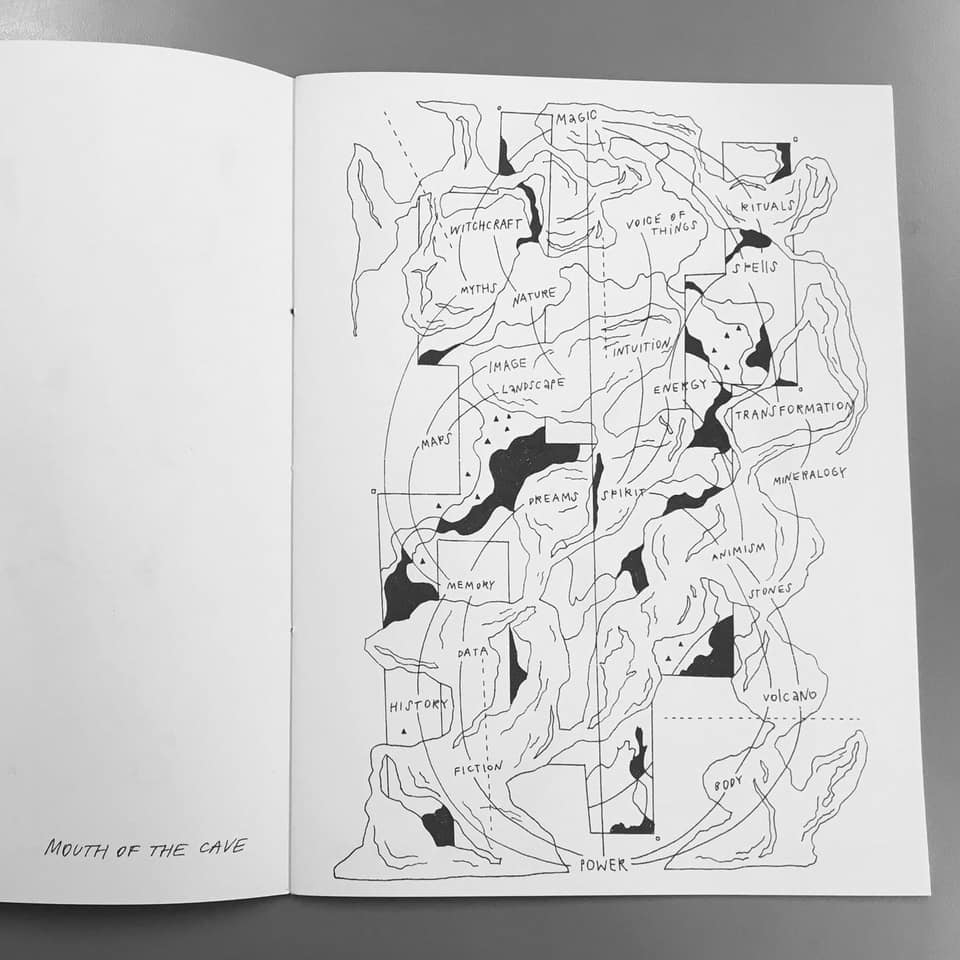 MOUTH OF THE CAVE
MAGIC
RITUALS
WITCHCRAFT
VOICE OF
THINGS
SPELLS
MYTHS
NATURE
INTUITION
IMAGE
LANDSCAPE
ENERGY
TRANSFORMATION
MAPS
MINERALOGY
DREAMS
SPIRIT
ANIMISM
MEMORY
STONES
DATA
VOLCANO
HISTORY
FICTION
BODY
POWER